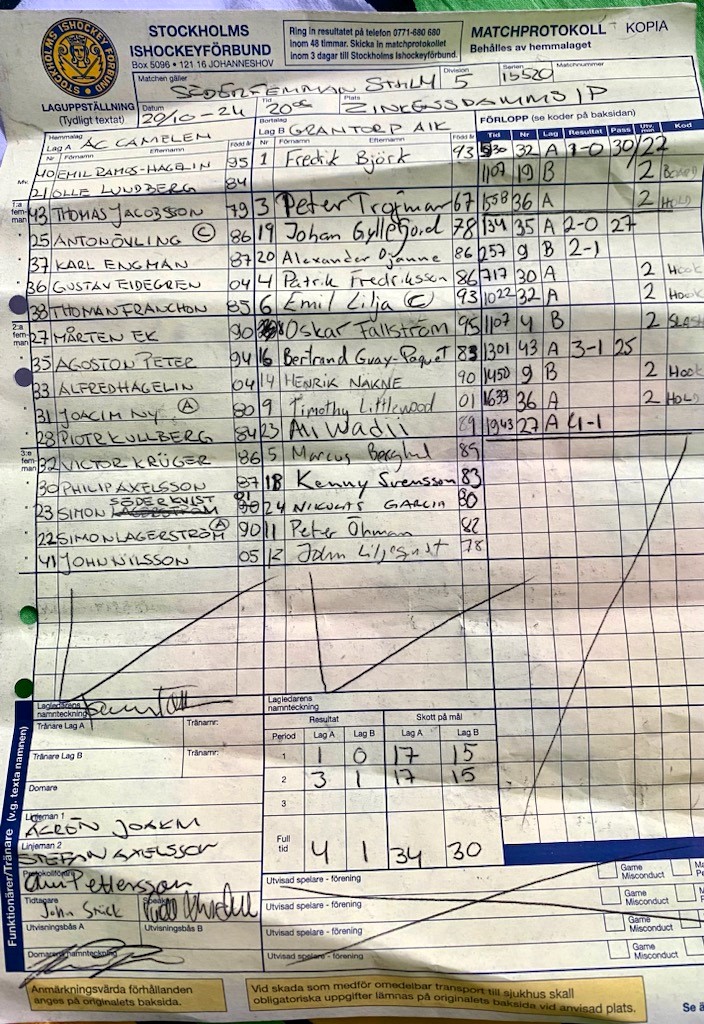 STOCKHOLMS ISHOCKEYFÖRBUND
STOCKHOLMS
ISHOCKEYFÖRBUND
Box 5096 • 121 16 JOHANNESHOV
Ring in resultatet på telefon 0771-680 680
inom 48 timmar. Skicka in matchprotokollet
inom 3 dagar till Stockholms Ishockeyförbund.
MATCHPROTOKOLL KOPIA
Behålles av hemmalaget
Matchen gäller SÖDERFEMMAN STHLM Division 5 Serienr 15520 Matchnummer
LAGUPPSTÄLLNING
(Tydligt textat)
Datum 20/10-24 Tid Plats ZINKENSDAMMS IP
Hemmalag
Lag A AC CAMELEN
Bortalag
Lag B GRANTORP AIK
FÖRLOPP (se koder på baksidan)
Nr Förnamn Efternamn Född år Nr Förnamn Efternamn Född år Tid Nr Lag Resultat Pass Utv. min Kod
Mv. 40 EMIL RAMOS-HAGELIN 95 1 Fredrik Björk 93 32 A 1-0 30/22
21 OLLE LUNDBERG 84 1107 19 B 2
1:a fem-man 43 THOMAS JACOBSSON 79 3 Peter Trojmar 67 1558 36 A 2 HOLD
25 ANTON ÖVLING C 86 19 Johan Gyllefjord 78 134 35 A 2-0 27
37 KARL ENGMAN 87 20 Alexander Djänne 86 257 9 B 2-1
36 GUSTAV EIDEGREN 04 4 Patrik Fredriksson 86 717 30 A 2 Hook
38 THOMAN FRANCHON 85 6 Emil Lilja (C) 93 1022 32 A 2 Hook
2:a fem-man 27 MÅRTEN EK 90 Oskar Fallström 95 1107 4 B 2 SLASH
35 AGOSTON PETER 94 16 Bertrand Guay-Paquet 83 1301 43 A 3-1 25
33 ALFRED HAGELIN 04 14 HENRIK NAKNE 90 1450 9 B 2 Hook
31 JOACIM NY A 80 9 Timothy Littlewood 01 1633 36 A 2 HOLD
28 PIOTR KULLBERG 84 23 Ali Wadii 89 1943 27 A 4-1
3:e fem-man 32 VICTOR KRÜGER 86 5 Marcus Berghul 85
30 PHILIP AXELSSON 87 18 Kenny Svensson 83
23 SIMON SÖDERKVIST 91 24 NIKOLAS GARCIA 80
22 SIMON LAGERSTRÖM A 90 11 Peter Öhman 82
41 JOHN NILSSON 05 12 John Liljeqvist 78
Lagledarens
namnteckning
Lagledarens
namnteckning
Tränare Lag A Tränarnr:
Tränare Lag B Tränarnr:
Domare
Resultat Skott på mål
Period Lag A Lag B Lag A Lag B
1 1 0 17 15
2 3 1 17 15
3
Full tid 4 1 34 30
Funktionärer/Tränare (v.g. texta namnen)
Linjeman 1
ÅGREN JOAKIM
Linjeman 2
STEFAN AXELSSON
Protokollförare
Pettersson
Tidtagare
John
Utvisningsbås A Utvisningsbås B
Domarens namnteckning
Utvisad spelare - förening Game Misconduct
Utvisad spelare - förening Game Misconduct
Utvisad spelare - förening Game Misconduct
Utvisad spelare - förening Game Misconduct
Anmärkningsvärda förhållanden
anges på originalets baksida.
Vid skada som medför omedelbar transport till sjukhus skall
obligatoriska uppgifter lämnas på originalets baksida vid anvisad plats.